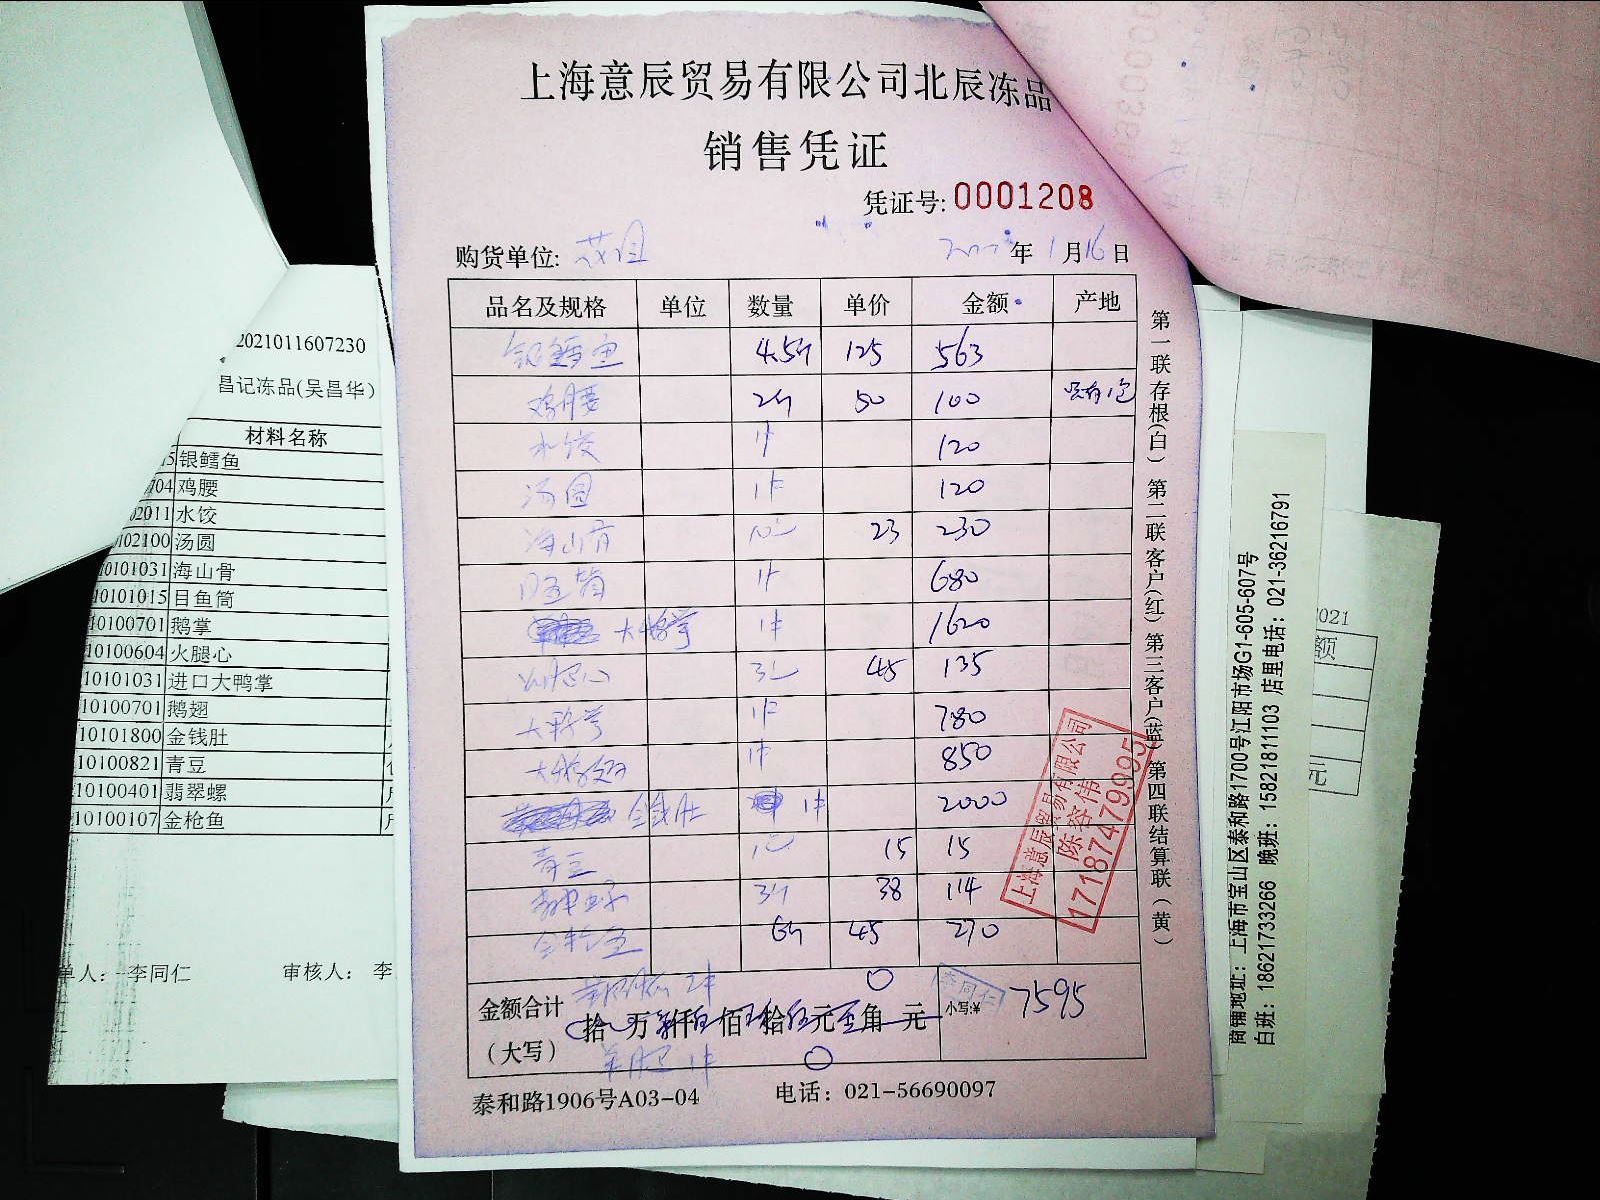 上海意辰贸易有限公司北辰冻品
销售凭证
凭证号: 0001208
购货单位:
年 1 月 16 日
品名及规格 单位 数量 单价 金额 产地
银鳕鱼 4.5 125 563
鸡腰 2 50 100
水饺 1件 120
汤圆 1件 120
海山骨 23 230
目鱼筒 1件 680
大鹅掌 1件 1620
火腿心 3 45 135
大鸭掌 1件 780
大鹅翅 1件 850
金钱肚 1件 2000
青豆 15 15
翡翠螺 3 38 114
金枪鱼 6 45 270
金额合计
(大写)
拾 万 仟 佰 拾 元 角 元
小写:¥ 7595
李同仁
泰和路1906号A03-04 电话: 021-56690097
第一联存根(白) 第二联客户(红) 第三客户(蓝) 第四联结算联(黄)
上海意辰贸易有限公司
陈容伟
17187479995
2021011607230
昌记冻品(吴昌华)
材料名称
5 银鳕鱼
704 鸡腰
02011 水饺
102100 汤圆
10101031 海山骨
10101015 目鱼筒
10100701 鹅掌
10100604 火腿心
10101031 进口大鸭掌
10100701 鹅翅
10101800 金钱肚
10100821 青豆
10100401 翡翠螺
10100107 金枪鱼
单人: 李同仁 审核人: 李
商铺地址: 上海市宝山区泰和路1700号江阳市场G1-605-607号
白班: 18621733266 晚班: 15821811103 店里电话: 021-36216791
2021
额
元